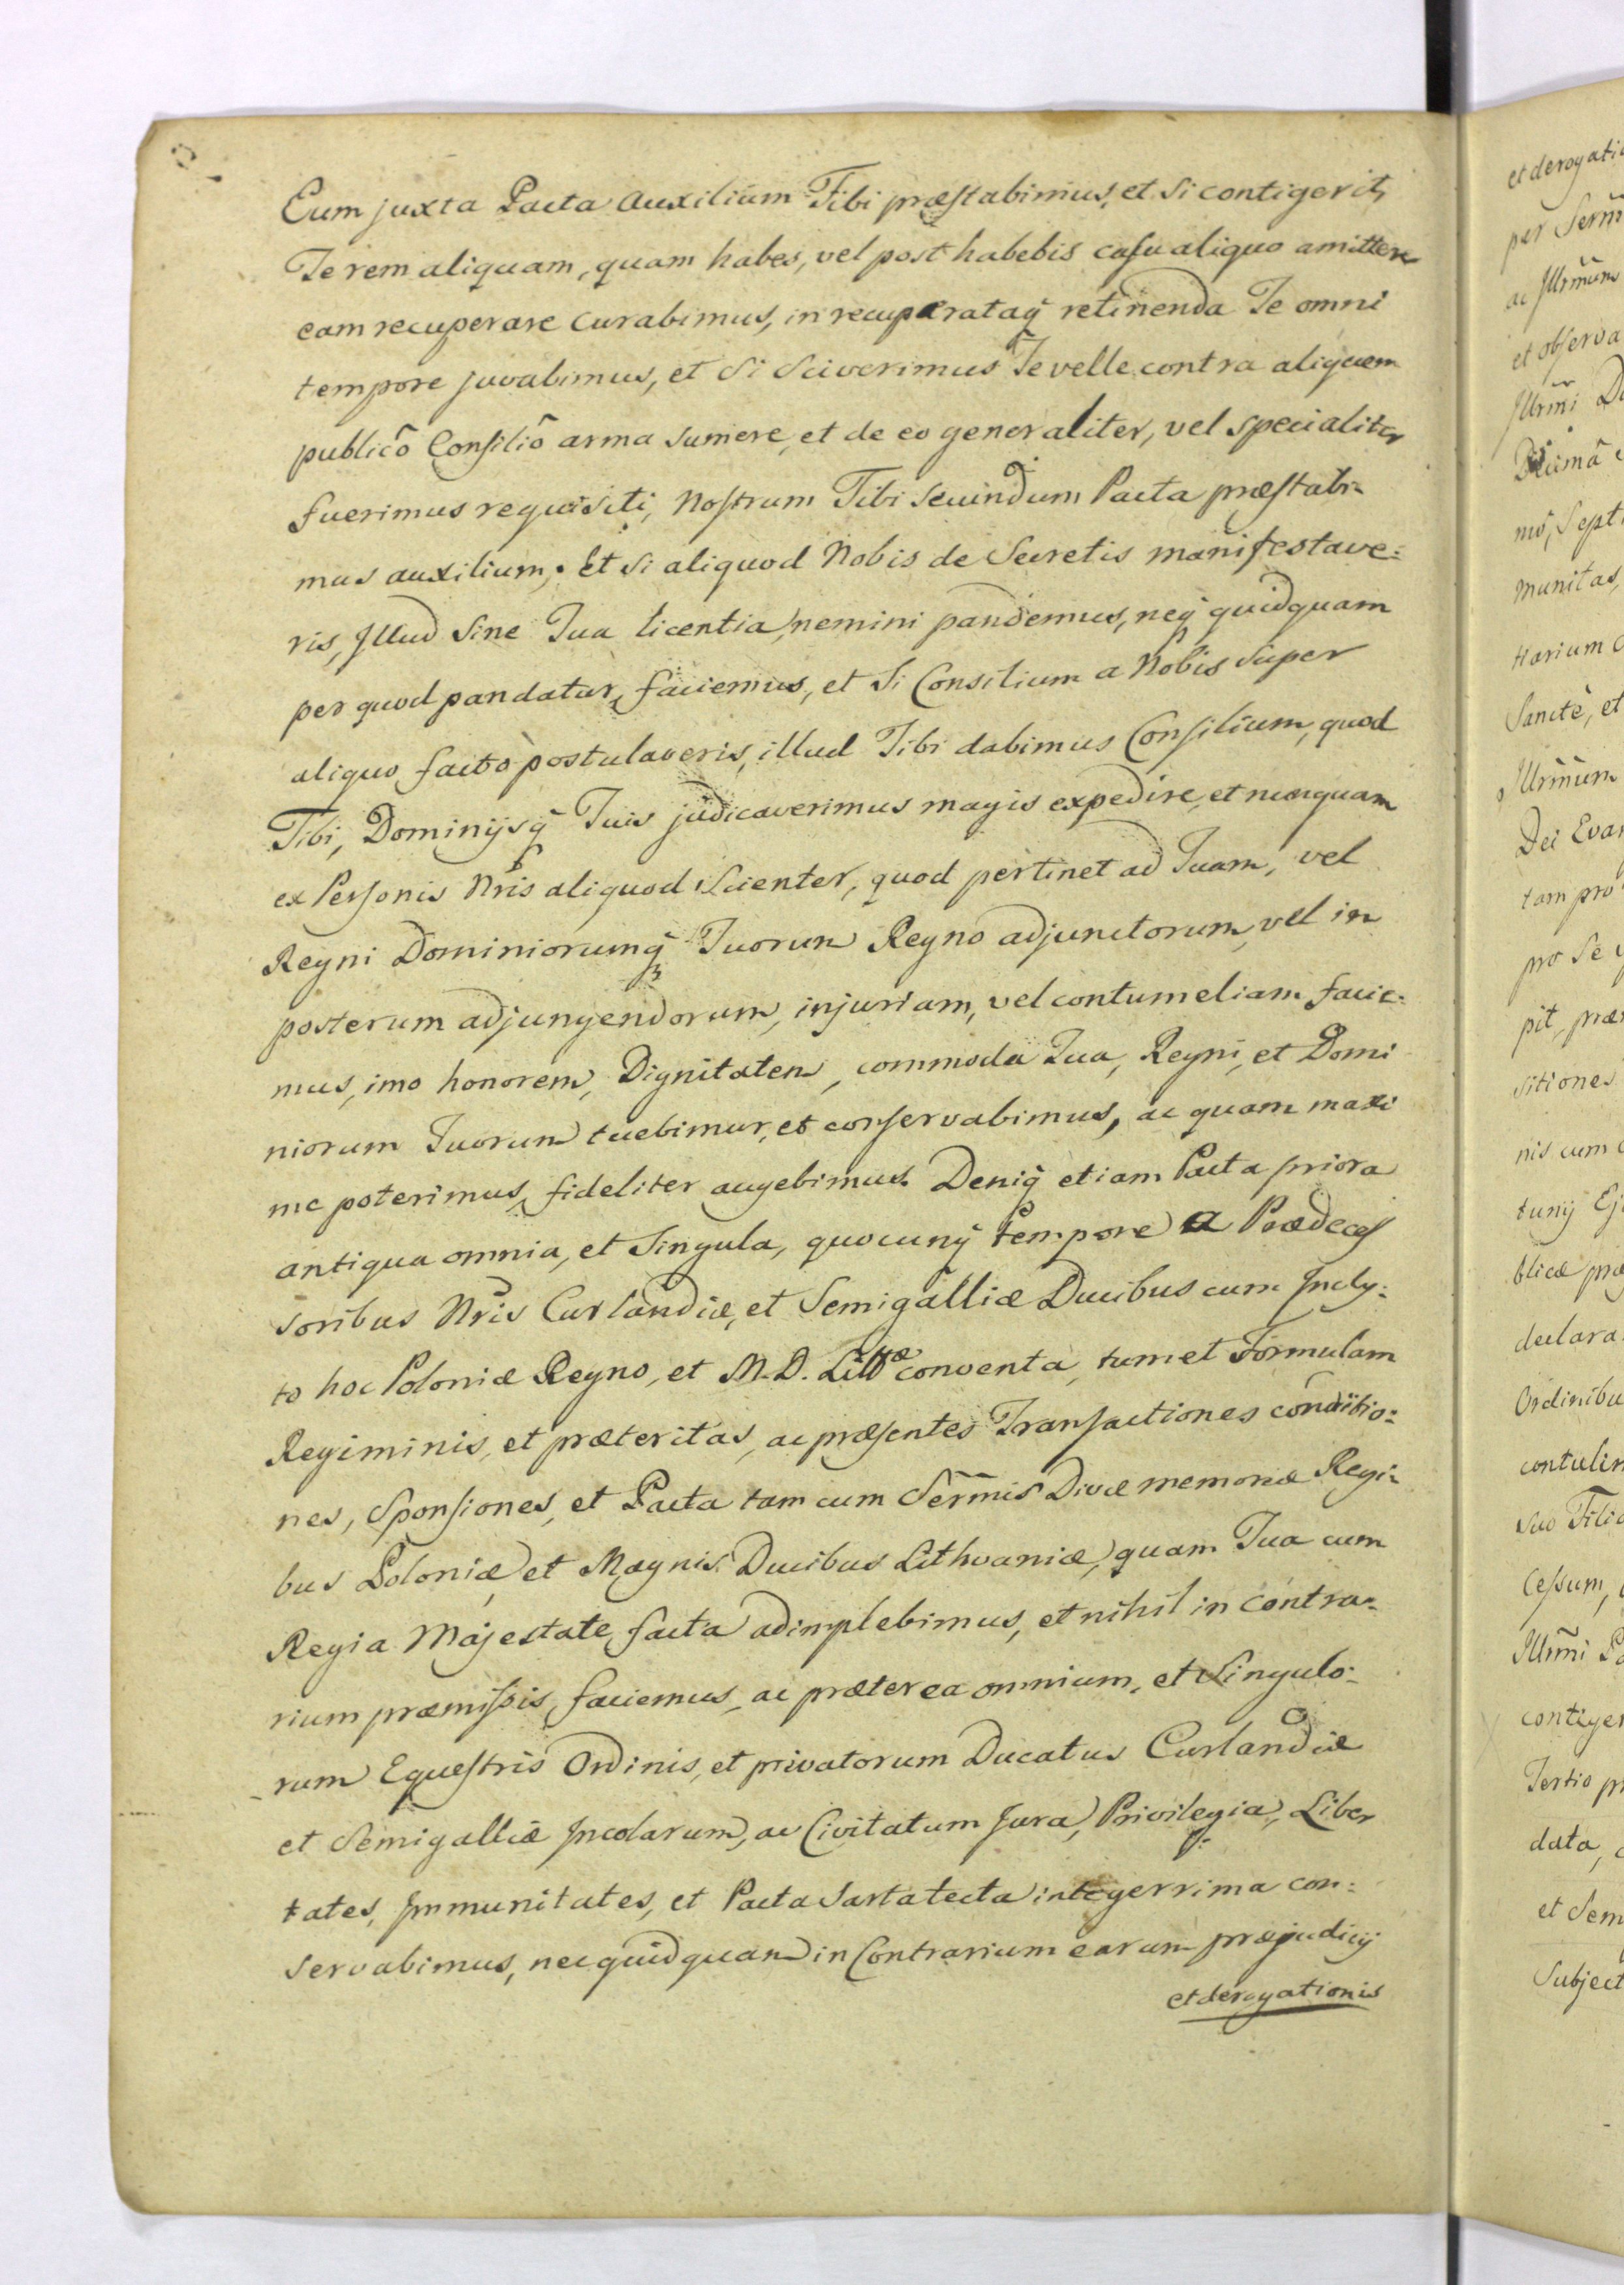 Eum juxta Pacta auxilium Tibi præstabimus, et si contigerit,
Te rem aliquam, quam habes, vel post habebis casu aliquo amittere
eam recuperare curabimus, in recuperataq̃ retinenda Te omni
tempore juvabimus, et si sciverimus Te velle contra aliquem
publicô Consiliô arma sumere, et de eo generaliter, vel specialiter
fuerimus requisiti, Nostrum Tibi secundum Pacta præstabi-
mus auxilium; Et si aliquod Nobis de Secretis manifestave:
ris, Illud sine Tua licentia, nemini pandemus, neq̃ quidquam
per quod pandatur, faciemus, et si Consilium a Nobis super
aliquo facto postulaveris, illud Tibi dabimus Consilium, quod
Tibi, Dominijsq̃ Tuis judicaverimus magis expedire, et nunquam
ex Personis Nr̃is aliquod scienter, quod pertinet ad Tuam, vel
Regni Dominiorumq̃ Tuorum Regno adjunctorum, vel in
posterum adjungendorum, injuriam, vel contumeliam facie:
mus, imo honorem, Dignitatem, commoda Tua, Regni, et Domi
niorum Tuorum tuebimur, et conservabimus, ac quam maxi
me poterimus, fideliter augebimus. Deniq̃ etiam Pacta priora
antiqua omnia, et singula, quocunq̃ tempore a Prædeces
soribus Nr̃is Curlandiæ, et Semigalliæ Ducibus cum Incly:
to hoc Poloniæ Regno, et M. D. Littæ conventa, tum et Formulam
Regiminis, et præteritas, ac præsentes Transactiones conditio:
nes, Sponsiones, et Pacta tam cum Serm̃is Divæ memoriæ Regi-
bus Poloniæ, et Magnis Ducibus Lithvaniæ, quam Tua cum
Regia Majestate facta adimplebimus, et nihil in contra-
rium præmissis, faciemus, ac præterea omnium, et singulo-
rum Equestris Ordinis, et privatorum Ducatus Curlandiæ
et Semigalliæ Incolarum, ac Civitatum Jura, Privilegia, Liber
tates, Immunitates, et Pacta sarta tecta integerrima con:
servabimus, nec quidquam in Contrarium earum præjudicij
et derogationis
et derogatio
per Serm̃
ac Illr̃mum
et observa
Illr̃mi
Sept
munitas,
Sanctè, et
Illr̃mum
Dei Evan
tam pro
pro se
pit, præ
sitiones
nis cum
blicæ præ
declara
Ordinibu
contulim
suo Filio
Cessum,
Illr̃mi
contiger
Tertio pr
data,
et Sem
Subject